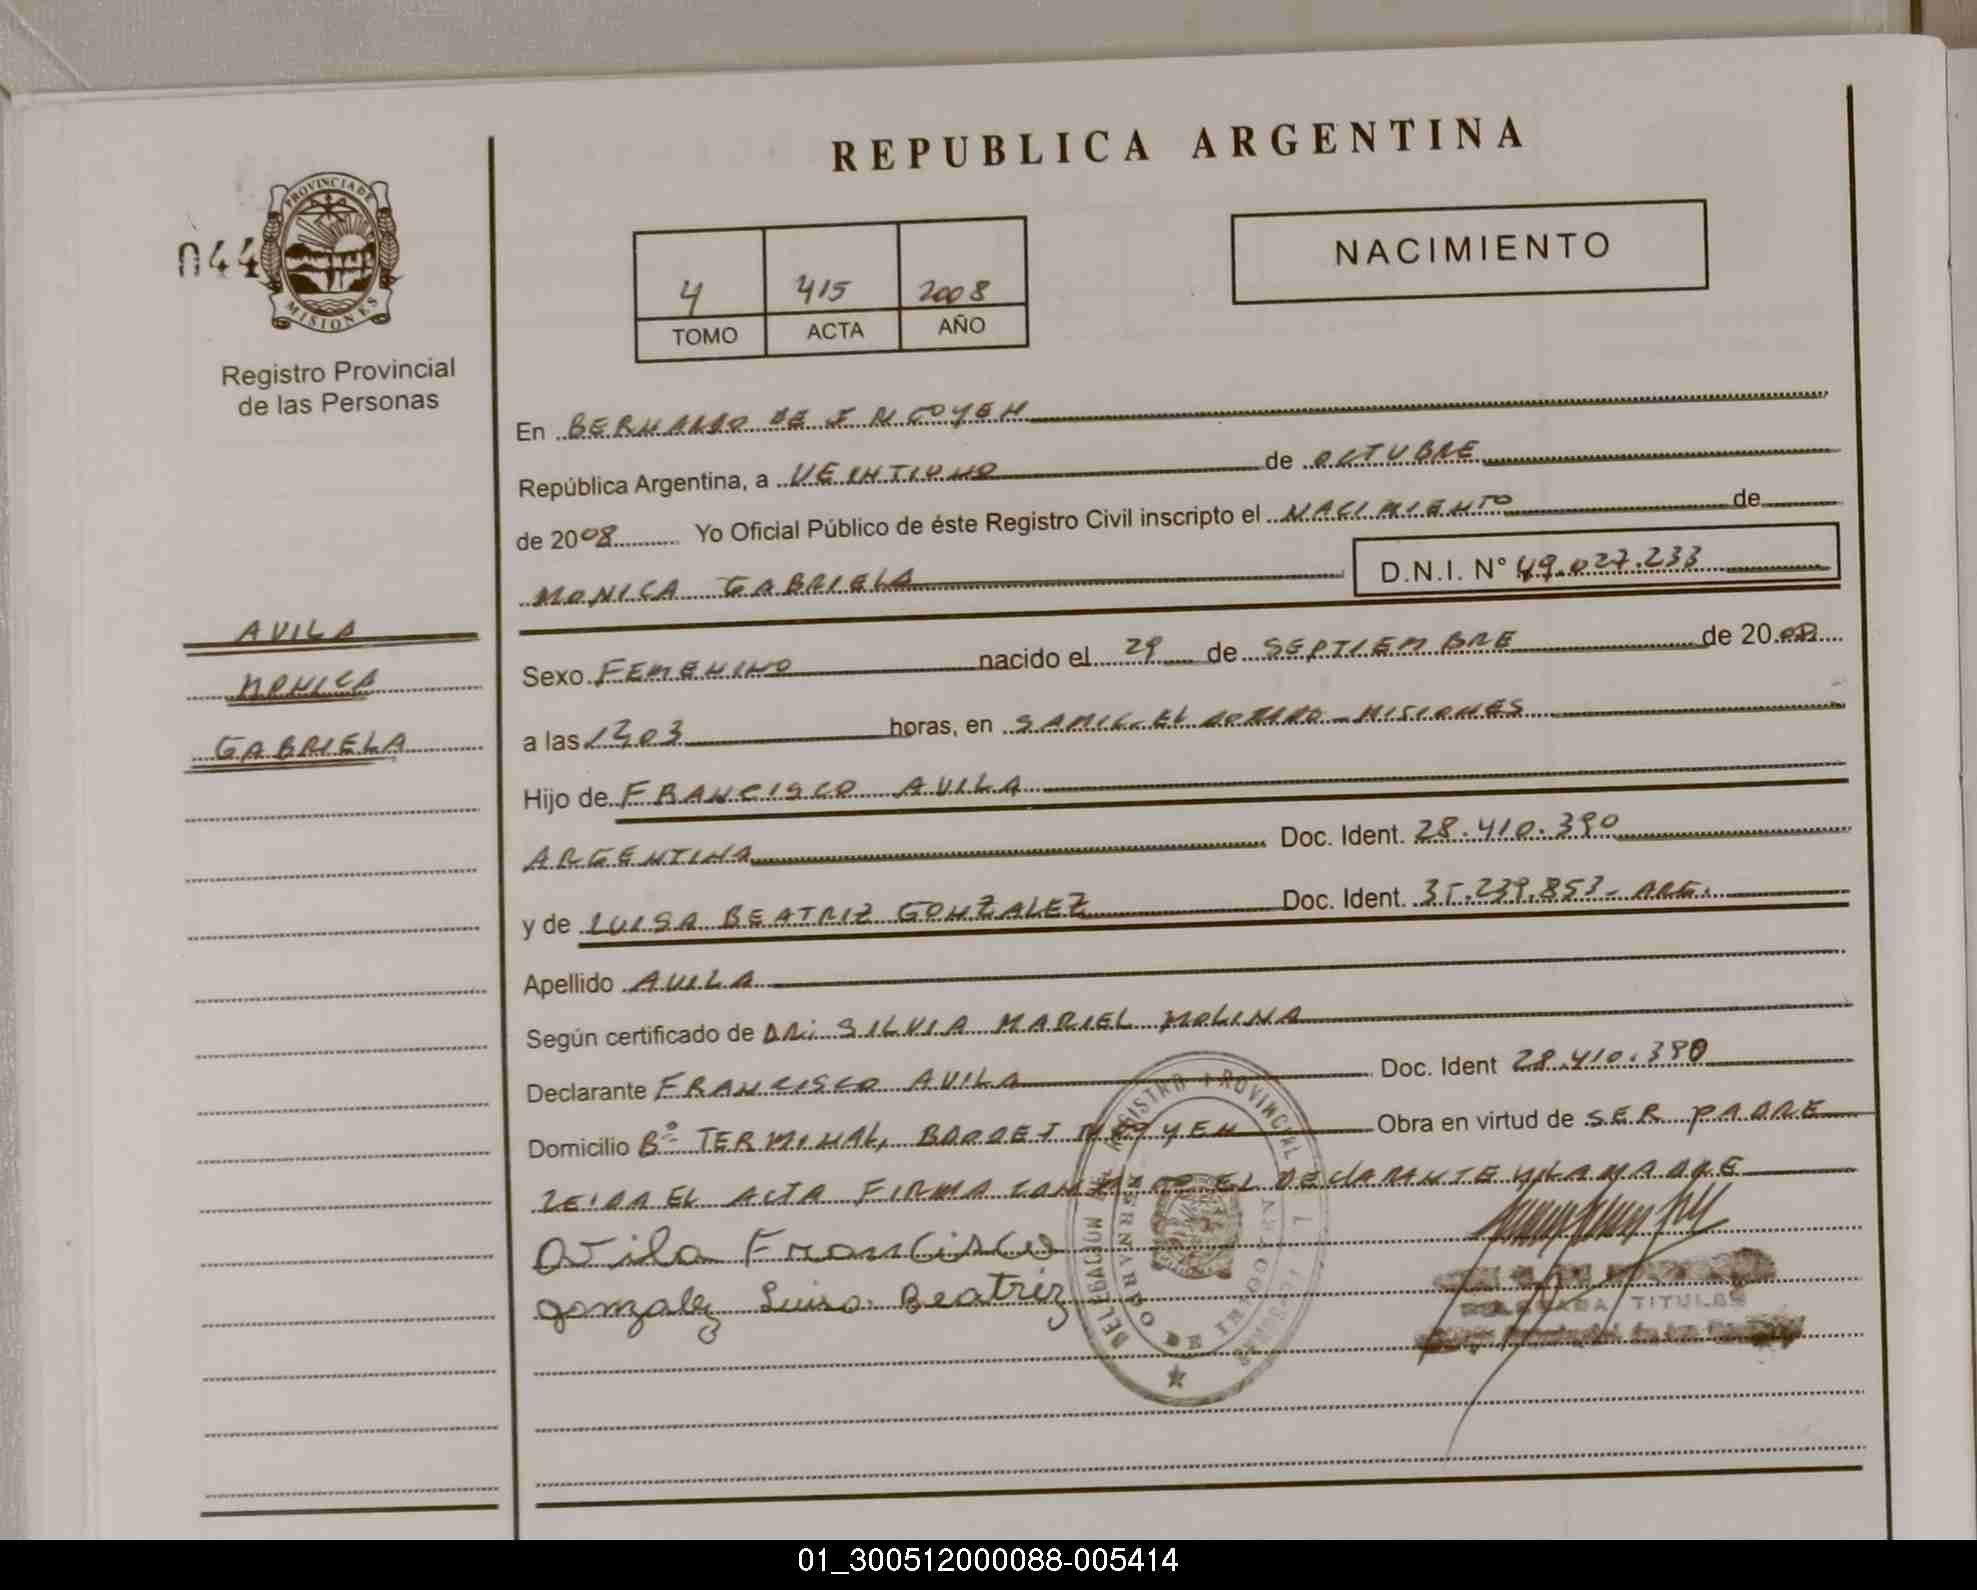 REPUBLICA ARGENTINA
PROVINCIA DE
MISIONES
044
Registro Provincial
de las Personas
4 415 2008
TOMO ACTA AÑO
NACIMIENTO
En BERNARDO DE IRIGOYEN
República Argentina, a VEINTIUNO de OCTUBRE
de 2008 Yo Oficial Público de éste Registro Civil inscripto el NACIMIENTO de
MONICA GABRIELA D.N.I. N° 49.027.233
AVILA
MONICA
GABRIELA
Sexo FEMENINO nacido el 29 de SEPTIEMBRE de 20 08
a las horas, en SAMIC. ELDORADO - MISIONES
Hijo de FRANCISCO AVILA
ARGENTINA Doc. Ident. 28.410.390
y de LUISA BEATRIZ GONZALEZ Doc. Ident. 35.239.853 - ARG.
Apellido AVILA
Según certificado de DRA: SILVIA MARIEL MOLINA
Declarante FRANCISCO AVILA Doc. Ident 28.410.390
Domicilio B° TERMINAL, Obra en virtud de SER PADRE
LEIDA EL ACTA FIRMA CONMIGO EL DECLARANTE Y LA MADRE
Avila Francisco
gonzalez Luisa Beatriz
REGISTRO PROVINCIAL
BERNARDO DE IRIGOYEN
DELEGADA TITULAR
01_300512000088-005414